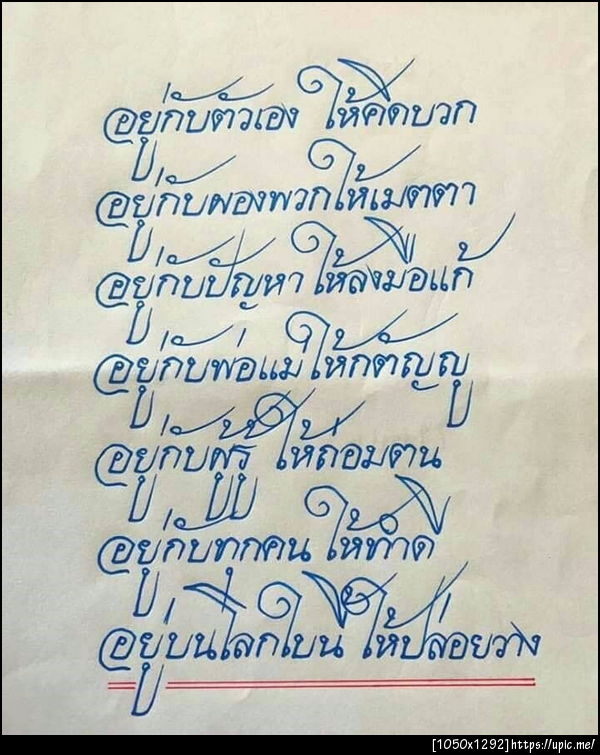 อยู่กับตัวเอง ให้คิดบวก
อยู่กับผองพวกให้เมตตา
อยู่กับปัญหา ให้ลงมือแก้
อยู่กับพ่อแม่ ให้กตัญญู
อยู่กับผู้รู้ ให้ถ่อมตน
อยู่กับทุกคน ให้ทำดี
อยู่บนโลกใบนี้ ให้ปล่อยวาง
[1050x1292]https://upic.me/